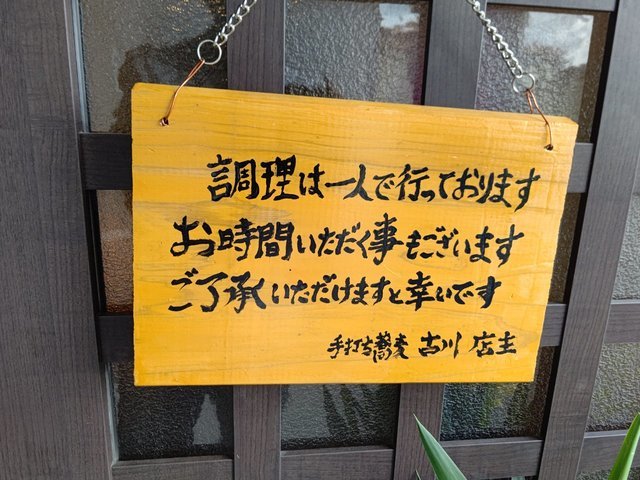 調理は一人で行っております
お時間いただく事もございます
ご了承いただけますと幸いです
手打ち蕎麦 古川 店主